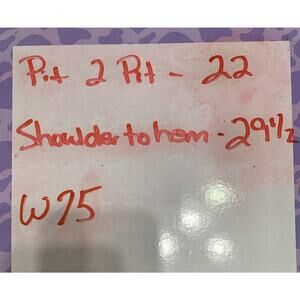 Pit 2 Pit - 22
Shoulder to hem - 29 1/2
W75